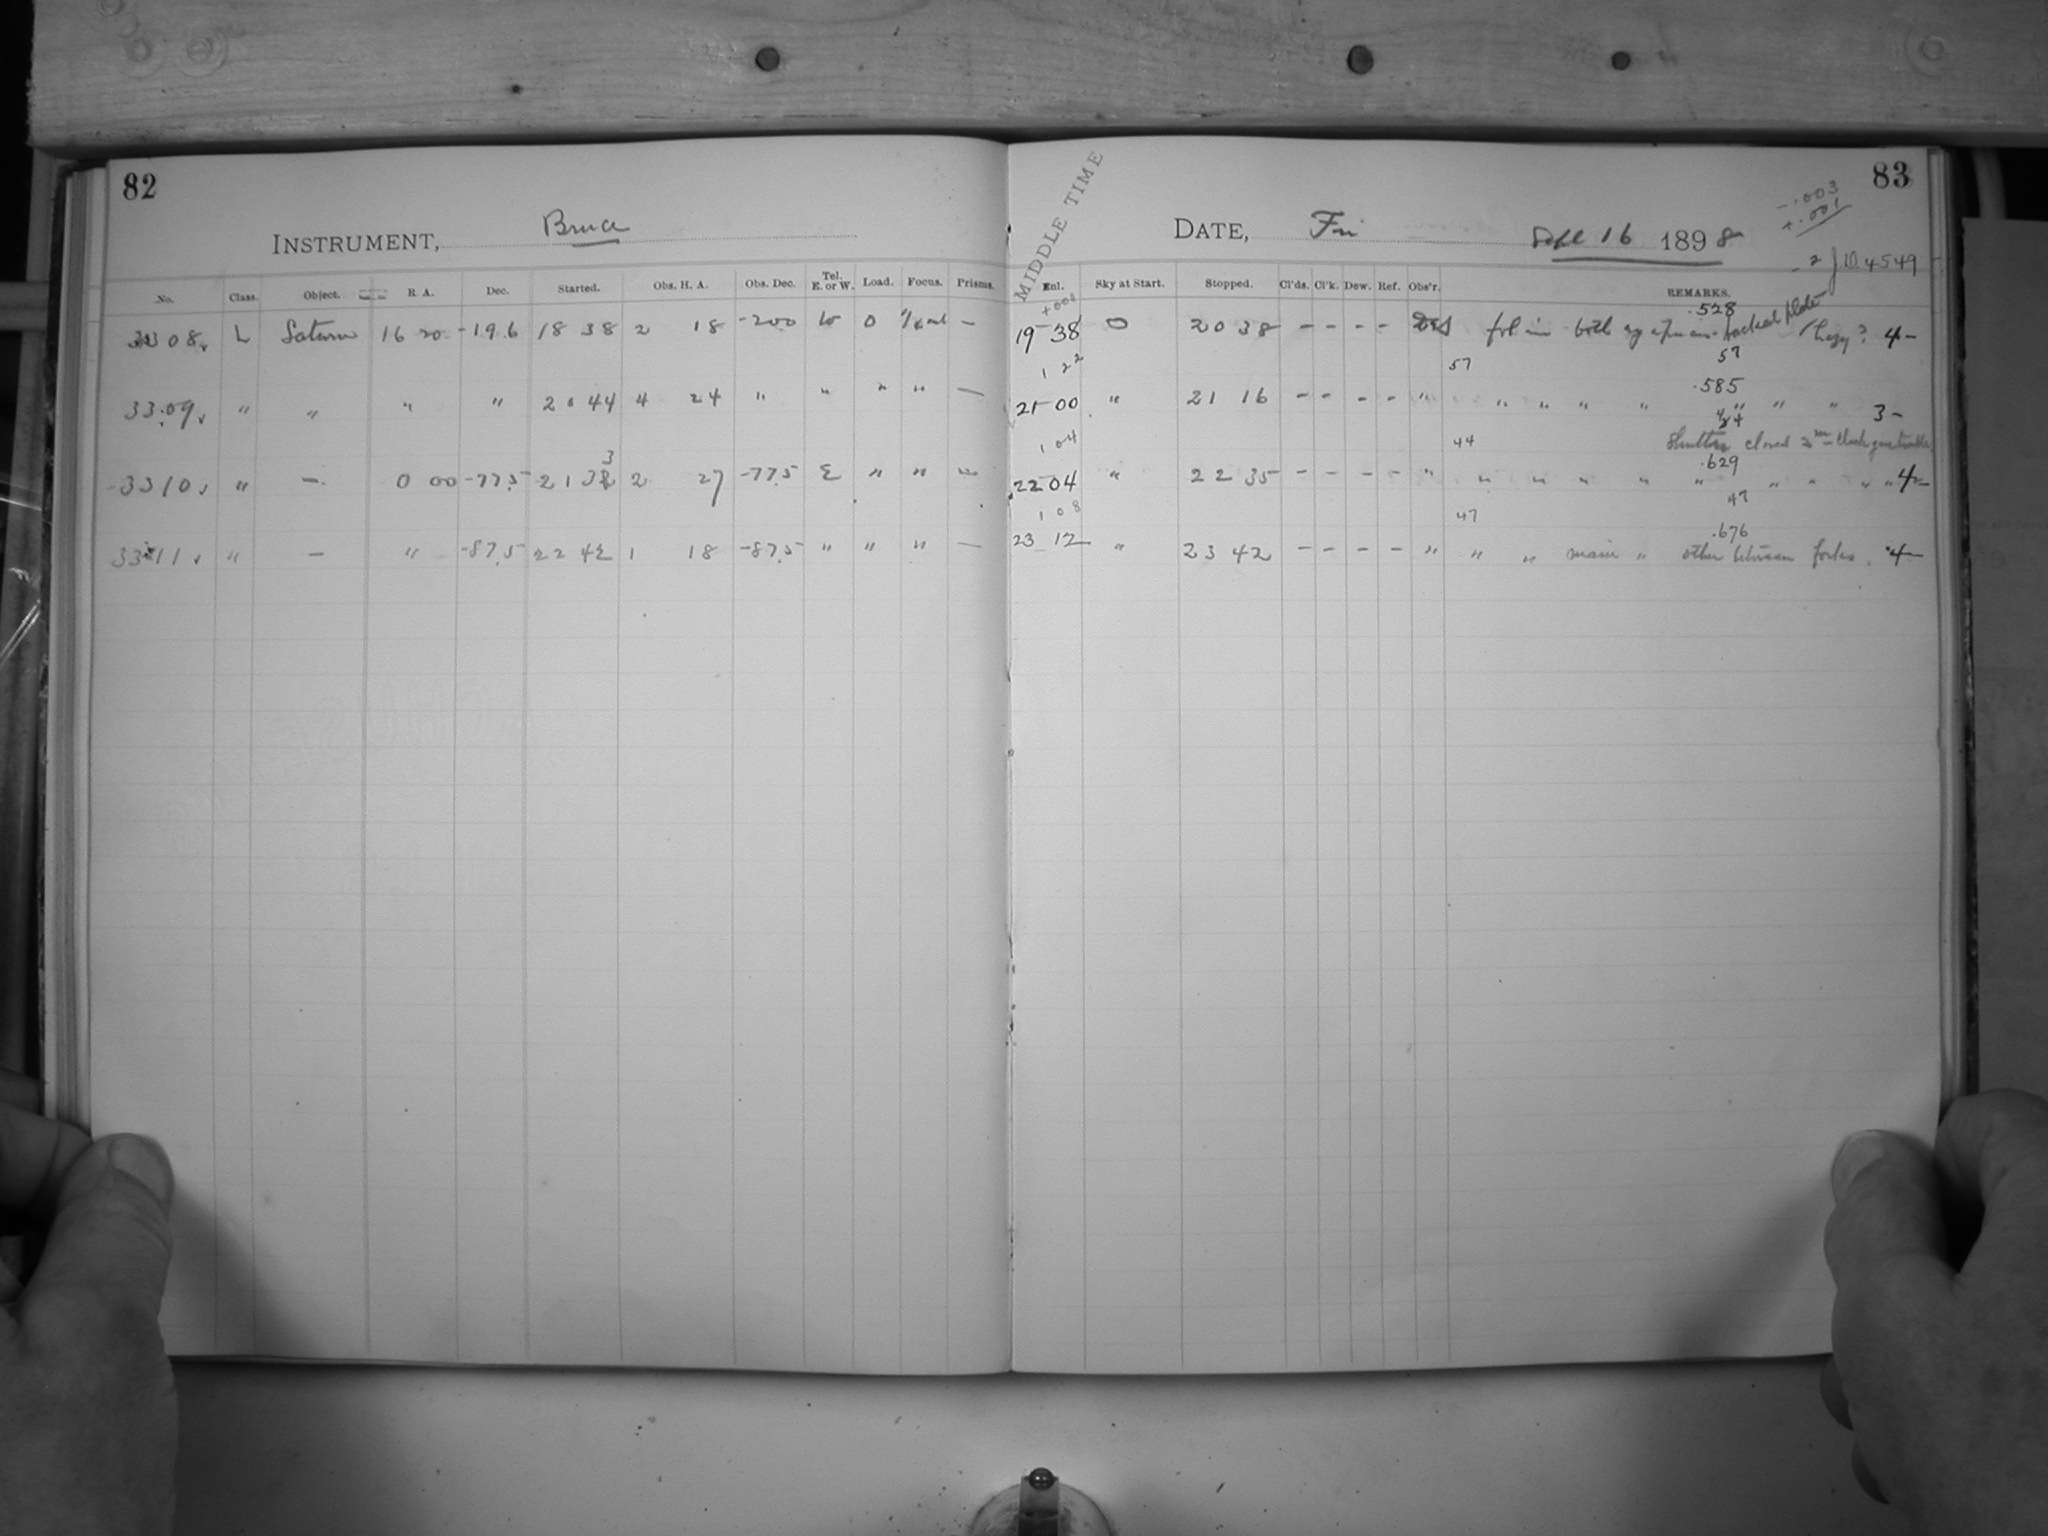 82
INSTRUMENT, Bruce
No. Class. Object. R. A. Dec. Started. Obs. H. A. Obs. Dec. Tel. E. or W. Load. Focus. Prisms.
3308 L Saturn 16 20 -19.6 18 38 2 18 -20.0 W 0 —
3309 " " " " 20 44 4 24 " " " " —
3
3310 " — 0 00 -77.5 21 32 2 27 -77.5 E " " —
3311 " — " -87.5 22 42 1 18 -87.5 " " " —
83
MIDDLE TIME
-.003
+.001
DATE, Fri Sept 16 1898
-2 J.D. 4549
Enl. Sky at Start. Stopped. Cl'ds. Cl'k. Dew. Ref. Obs'r. REMARKS.
.528
19 38 0 20 38 - - - - fol in both plate hazy? 4-
1 22 57 57
.585
21 00 " 21 16 - - - - " " " " " " " " 3-
1 04 44 Shutter closed
.629
22 04 " 22 35 - - - - " " " " " " " " " " 4-
1 08 47 47
.676
23 12 " 23 42 - - - - " " " main " other between forks. 4-